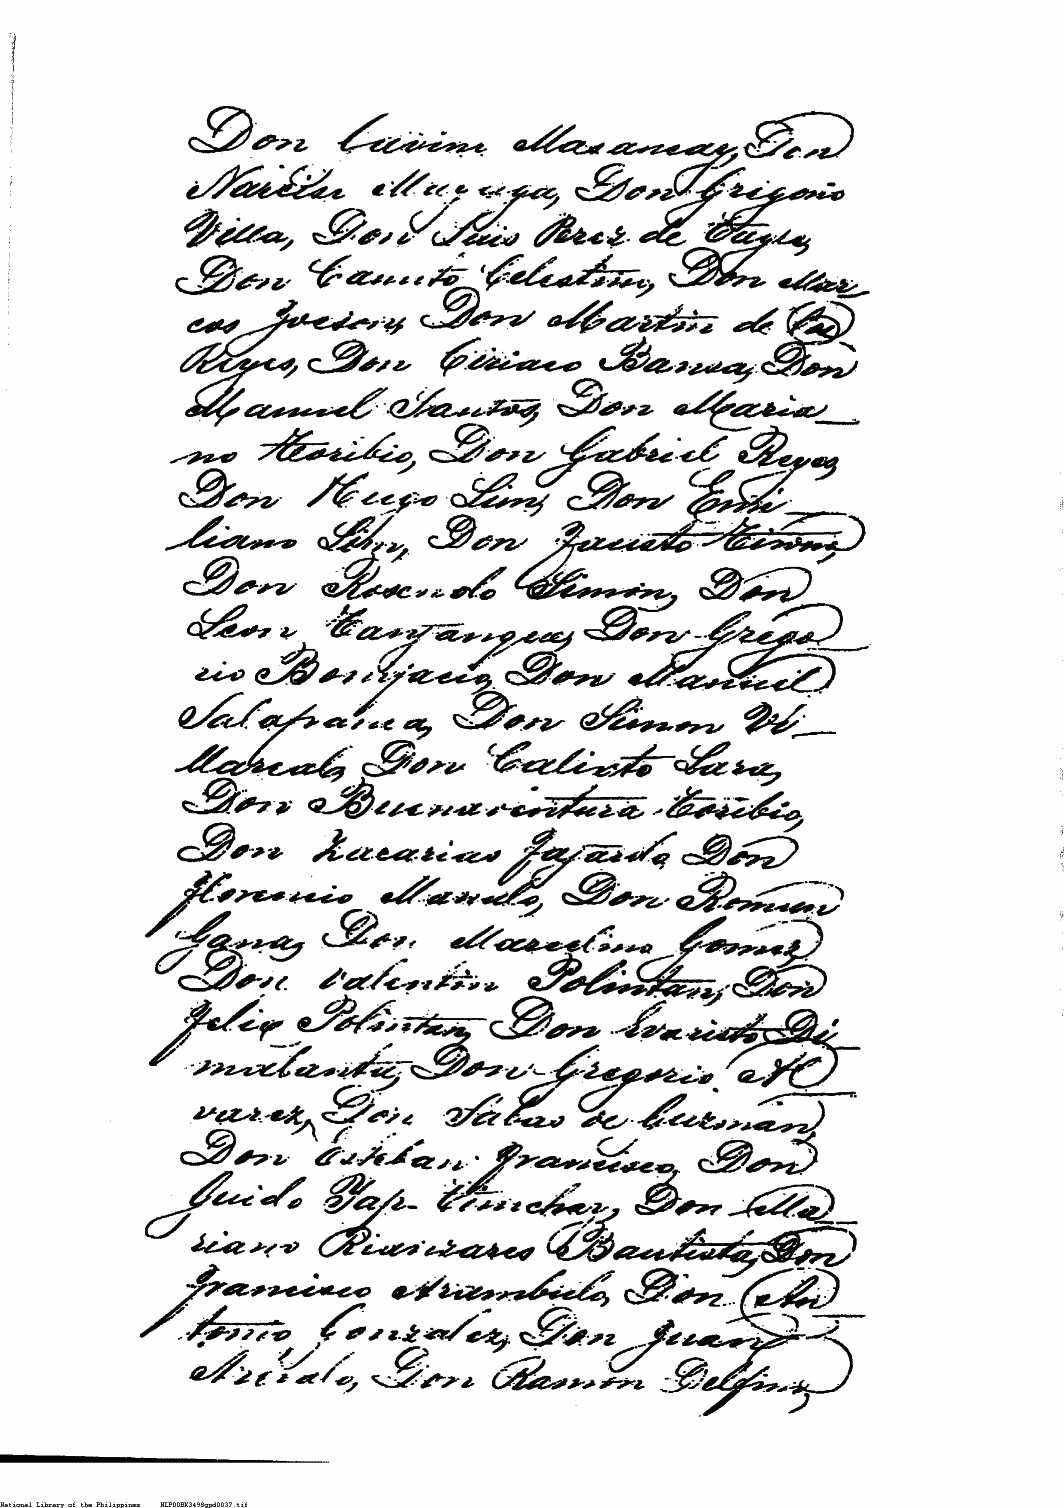 Don Cuvin Masancay, Don
Narciso Mayuga, Don Grigorio
Villa, Don Luis Perez de Tagle,
Don Canuto Celestino, Don Mar
cos Jocson, Don Martin de los
Reyes, Don Ciriaco Bansa, Don
Manuel Santos, Don Maria_
no Teoribio, Don Gabriel Reyes,
Don Hugo Lim, Don Emi_
liano Don Fausto Tirona,
Don Rosendo Simon, Don
Leon Tanjangco, Don Grego_
rio Bonifacio, Don Manuel
Salafranca, Don Simon Vi_
llareal, Don Calixto Lara,
Don Buenaventura Toribio,
Don Zacarias Fajardo, Don
Florencio Manalo, Don Roman
Gana, Don Marcelino Gomez,
Don Valentin Polintan, Don
Felix Polintan, Don Evaristo Di_
malanta, Don Gregorio Al_
varez, Don Sabas de Guzman,
Don Esteban Francisco, Don
Guido Yap-Tinchay, Don Ma_
riano Rianzares Bautista, Don
Francisco Arambulo, Don An_
tonio Gonzalez, Don Juan
Arevalo, Don Ramon Delfino,
National Library of the Philippines NLP00BK3498gpd0037.tif